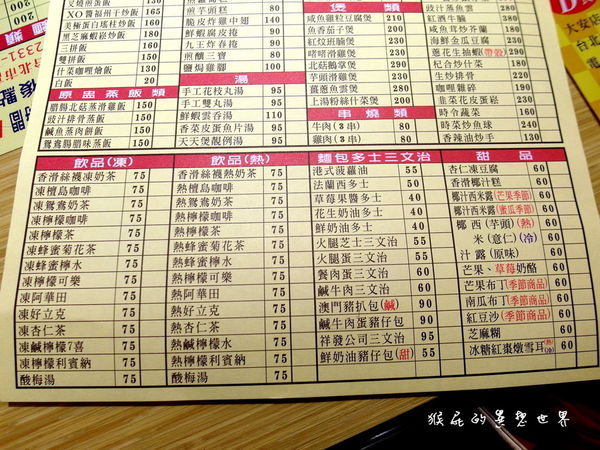 叉燒煎蛋飯
XO醬福州干炒飯 165
美極蛋白瑤柱炒飯 160
黑芝麻蝦崧炒飯 160
三拼飯 150
雙拼飯 150
什菜咖哩燴飯 150
白飯 20
原盅蒸飯類
腊腸北菇蒸滑雞飯 150
豉汁排骨蒸飯 150
鹹魚蒸肉餅飯 150
鴛鴦腸腊味蒸飯 150
煎芋頭糕
脆皮炸雞中翅 140
鮮蝦腐皮捲 90
九王炸春捲 90
煎釀三寶 80
鹽焗雞腳 100
湯
手工花枝丸湯 95
手工雙丸湯 95
鮮蝦雲吞湯 95
香菜皮蛋魚片湯 95
天天煲靚例湯 95
煲類
咸魚雞粒豆腐煲
魚香茄子煲
紅炆斑腩煲
啫啫滑雞煲
北菇鵝掌煲
芋頭滑雞煲 280
薑蔥魚雲煲 280
上湯粉絲什菜煲 180
串燒類
牛肉(3串) 80
雞肉(3串) 80
豉汁蒸魚雲
紅酒牛腩
咸魚茸炒芥蘭
海鮮金瓜豆腐
蔥花生抽蝦(帶殼)
杞合炒什菜
生炒排骨
咖哩雜碎
韭菜花皮蛋崧
時令蔬菜 160
時菜炒魚球 230
香辣油炒手 130
飲品(凍)
香滑絲襪凍奶茶 75
凍檀島咖啡 75
凍鴛鴦奶茶 75
凍檸檬咖啡 75
凍檸檬茶 75
凍蜂蜜菊花茶 75
凍蜂蜜檸水 75
凍檸檬可樂 75
凍阿華田 75
凍好立克 75
凍杏仁茶 75
凍鹹檸檬7喜 75
凍檸檬利賓納 75
酸梅湯 75
飲品(熱)
香滑絲襪熱奶茶 75
熱檀島咖啡 75
熱鴛鴦奶茶 75
熱檸檬咖啡 75
熱檸檬茶 75
熱蜂蜜菊花茶 75
熱蜂蜜檸水 75
熱檸檬可樂 75
熱阿華田 75
熱好立克 75
熱杏仁茶 75
熱鹹檸檬水 75
熱檸檬利賓納 75
酸梅湯 75
麵包多士三文治
港式菠蘿油 55
法蘭西多士 50
草莓果醬多士 40
花生奶油多士 40
鮮奶油多士 40
火腿芝士三文治 60
火腿蛋三文治 60
餐肉蛋三文治 60
鹹牛肉三文治 60
澳門豬扒包(鹹) 90
鹹牛肉蛋豬仔包 90
祥發公司三文治 90
鮮奶油豬仔包(甜) 55
甜品
杏仁凍豆腐 60
香滑椰汁糕 60
椰汁西米露(芒果季節) 60
椰汁西米露(蜜瓜季節) 60
椰西(芋頭)(熱) 60
米(意仁)(冷)
汁露(原味) 60
芒果、草莓奶酪 60
芒果布丁(季節商品) 60
南瓜布丁(季節商品) 60
紅豆沙(季節商品) 60
芝麻糊 60
冰糖紅棗燉雪耳(熱/冷) 60
猴屁的異想世界